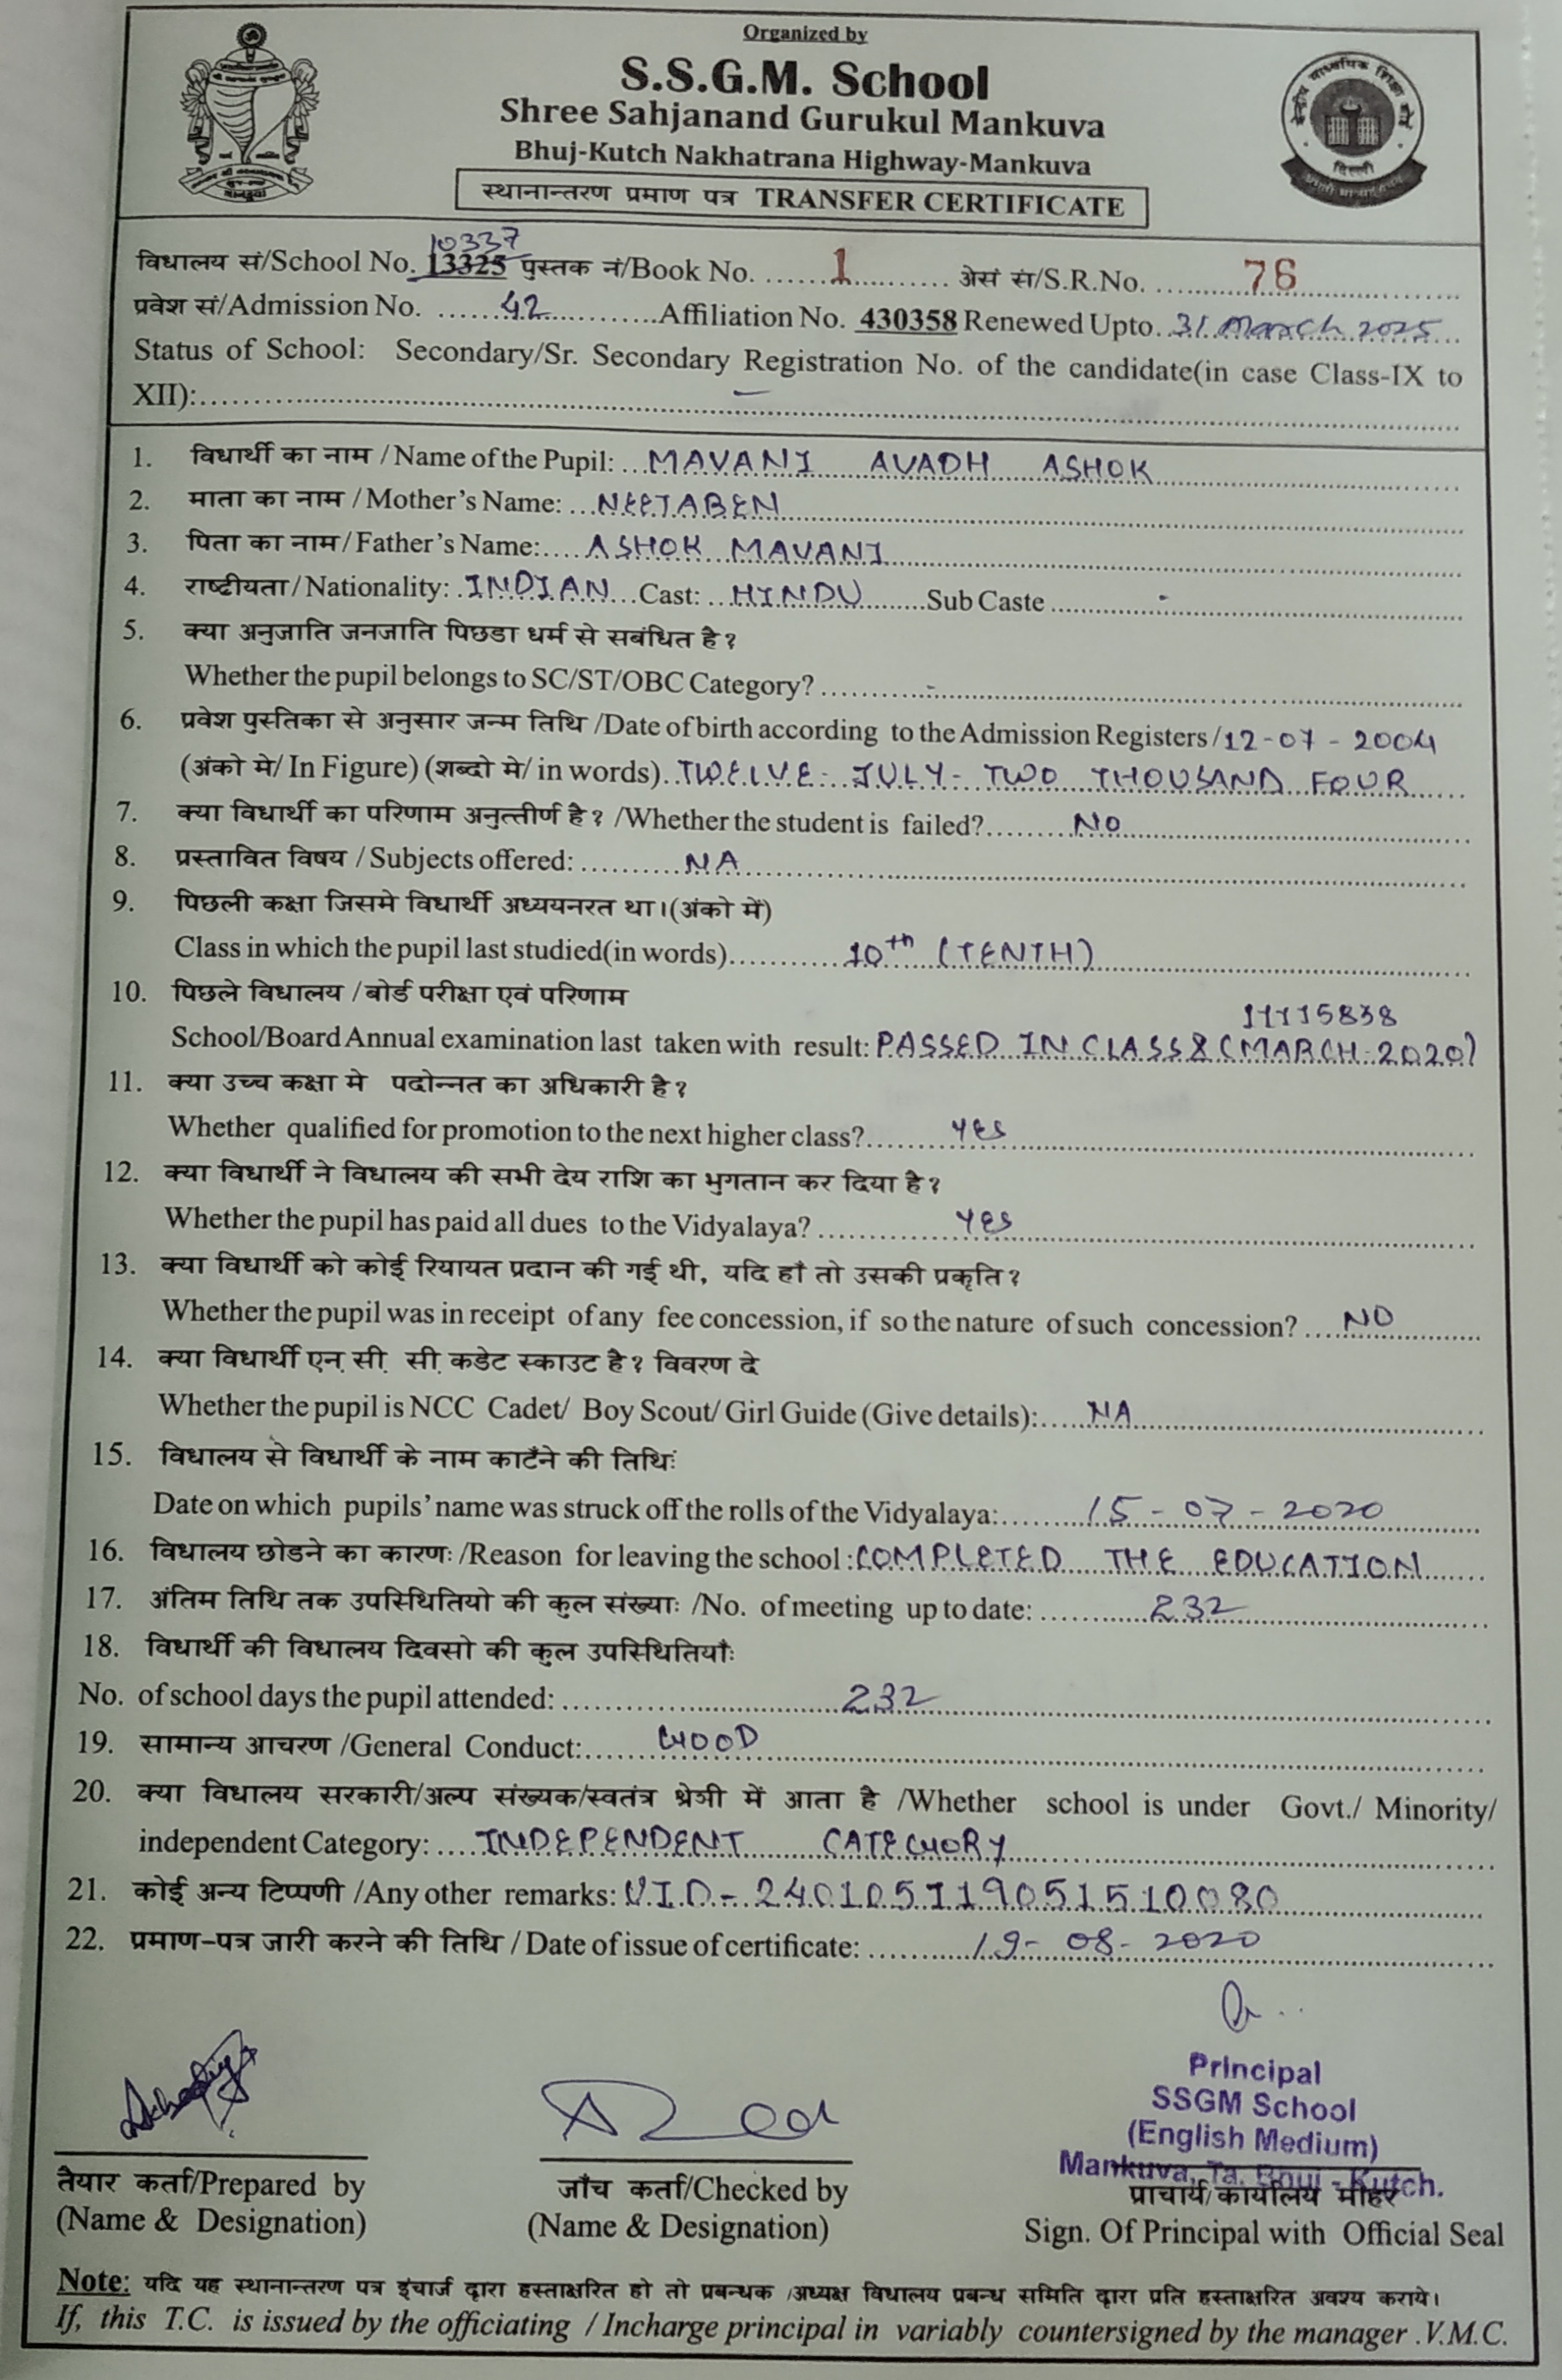 Organized by
S.S.G.M. School
Shree Sahjanand Gurukul Mankuva
Bhuj-Kutch Nakhatrana Highway-Mankuva
स्थानान्तरण प्रमाण पत्र TRANSFER CERTIFICATE
दिल्ली
10337
विधालय सं/School No. 13325 पुस्तक नं/Book No. ......1.......... अेसं सं/S.R.No. ..........76..................
प्रवेश सं/Admission No. ......42............Affiliation No. 430358 Renewed Upto. 31 March 2025...
Status of School: Secondary/Sr. Secondary Registration No. of the candidate(in case Class-IX to
XII):.................... – ....................
1. विधार्थी का नाम / Name of the Pupil: ...MAVANI AVADH ASHOK..........
2. माता का नाम / Mother's Name: ...NEETABEN..........
3. पिता का नाम/ Father's Name:....ASHOK MAVANI..........
4. राष्टीयता/ Nationality: .INDIAN...Cast: ...HINDU........Sub Caste .......... - ..........
5. क्या अनुजाति जनजाति पिछडा धर्म से सबंधित है?
Whether the pupil belongs to SC/ST/OBC Category? .......... - ..........
6. प्रवेश पुस्तिका से अनुसार जन्म तिथि /Date of birth according to the Admission Registers/12-07-2004
(अंको मे/ In Figure) (शब्दो मे/ in words)..TWELVE- JULY- TWO THOUSAND FOUR......
7. क्या विधार्थी का परिणाम अनुत्तीर्ण है? /Whether the student is failed?.........NO..........
8. प्रस्तावित विषय / Subjects offered: ..........NA..........
9. पिछली कक्षा जिसमे विधार्थी अध्ययनरत था।(अंको में)
Class in which the pupil last studied(in words)...........10th (TENTH)..........
10. पिछले विधालय /बोर्ड परीक्षा एवं परिणाम
11115838
School/Board Annual examination last taken with result: PASSED IN CLASS X (MARCH-2020)
11. क्या उच्च कक्षा मे पदोन्नत का अधिकारी है?
Whether qualified for promotion to the next higher class?.........YES..........
12. क्या विधार्थी ने विधालय की सभी देय राशि का भुगतान कर दिया है?
Whether the pupil has paid all dues to the Vidyalaya? ..........YES..........
13. क्या विधार्थी को कोई रियायत प्रदान की गई थी, यदि हाँ तो उसकी प्रकृति?
Whether the pupil was in receipt of any fee concession, if so the nature of such concession? ....NO..........
14. क्या विधार्थी एन. सी. सी. कडेट स्काउट है? विवरण दे
Whether the pupil is NCC Cadet/ Boy Scout/ Girl Guide (Give details):.....NA..........
15. विधालय से विधार्थी के नाम काटँने की तिथिः
Date on which pupils' name was struck off the rolls of the Vidyalaya:.........15-07-2020..........
16. विधालय छोडने का कारणः /Reason for leaving the school :COMPLETED THE EDUCATION......
17. अंतिम तिथि तक उपस्थितियो की कुल संख्याः /No. of meeting up to date: ..........232..........
18. विधार्थी की विधालय दिवसो की कुल उपस्थितियाँः
No. of school days the pupil attended: ..........232..........
19. सामान्य आचरण /General Conduct:.......GOOD..........
20. क्या विधालय सरकारी/अल्प संख्यक/स्वतंत्र श्रेञी में आता है /Whether school is under Govt./ Minority/
independent Category: ....INDEPENDENT CATEGORY..........
21. कोई अन्य टिप्पणी /Any other remarks: U.I.D- 240105119051510080
22. प्रमाण-पत्र जारी करने की तिथि / Date of issue of certificate: ..........19-08-2020..........
Principal
SSGM School
(English Medium)
Mankuva, Ta. Bhuj - Kutch.
तैयार कर्ता/Prepared by
(Name & Designation)
जाँच कर्ता/Checked by
(Name & Designation)
प्राचार्य/कार्यालय मोहर
Sign. Of Principal with Official Seal
Note: यदि यह स्थानान्तरण पत्र इंचार्ज द्वारा हस्ताक्षरित हो तो प्रबन्धक /अध्यक्ष विधालय प्रबन्ध समिति द्वारा प्रति हस्ताक्षरित अवश्य कराये।
If, this T.C. is issued by the officiating / Incharge principal in variably countersigned by the manager .V.M.C.